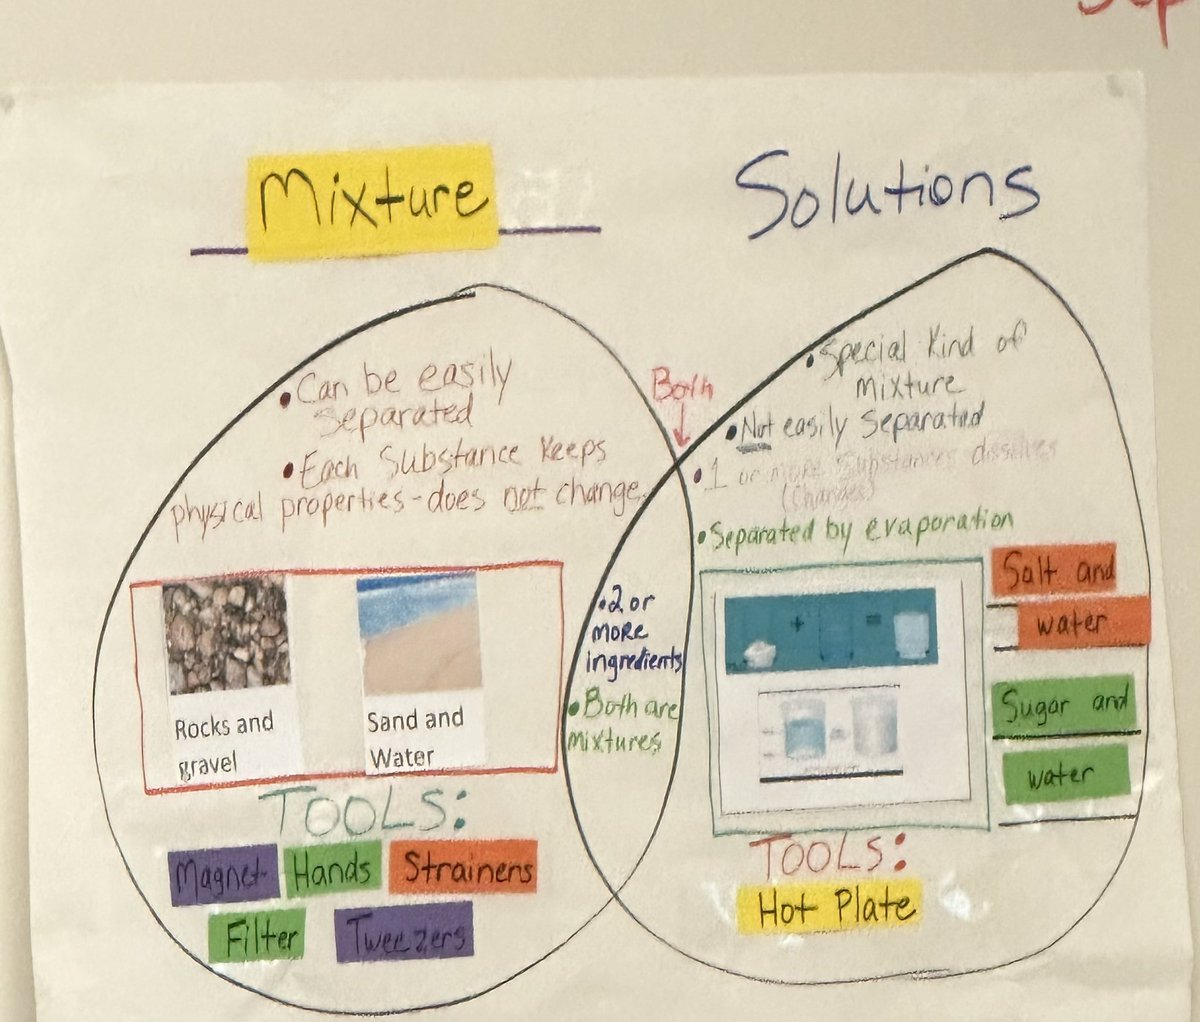 Mixture
Solutions
• Can be easily
separated
• Each Substance keeps
physical properties - does not change.
Both
• 2 or
more
ingredients
• Both are
mixtures
• Special Kind of
mixture
• Not easily separated
• 1 or more substances dissolves
(changes)
• Separated by evaporation
Rocks and
gravel
Sand and
Water
TOOLS:
Magnet Hands Strainers
Filter Tweezers
+ =
Salt and
water
Sugar and
water
TOOLS:
Hot Plate